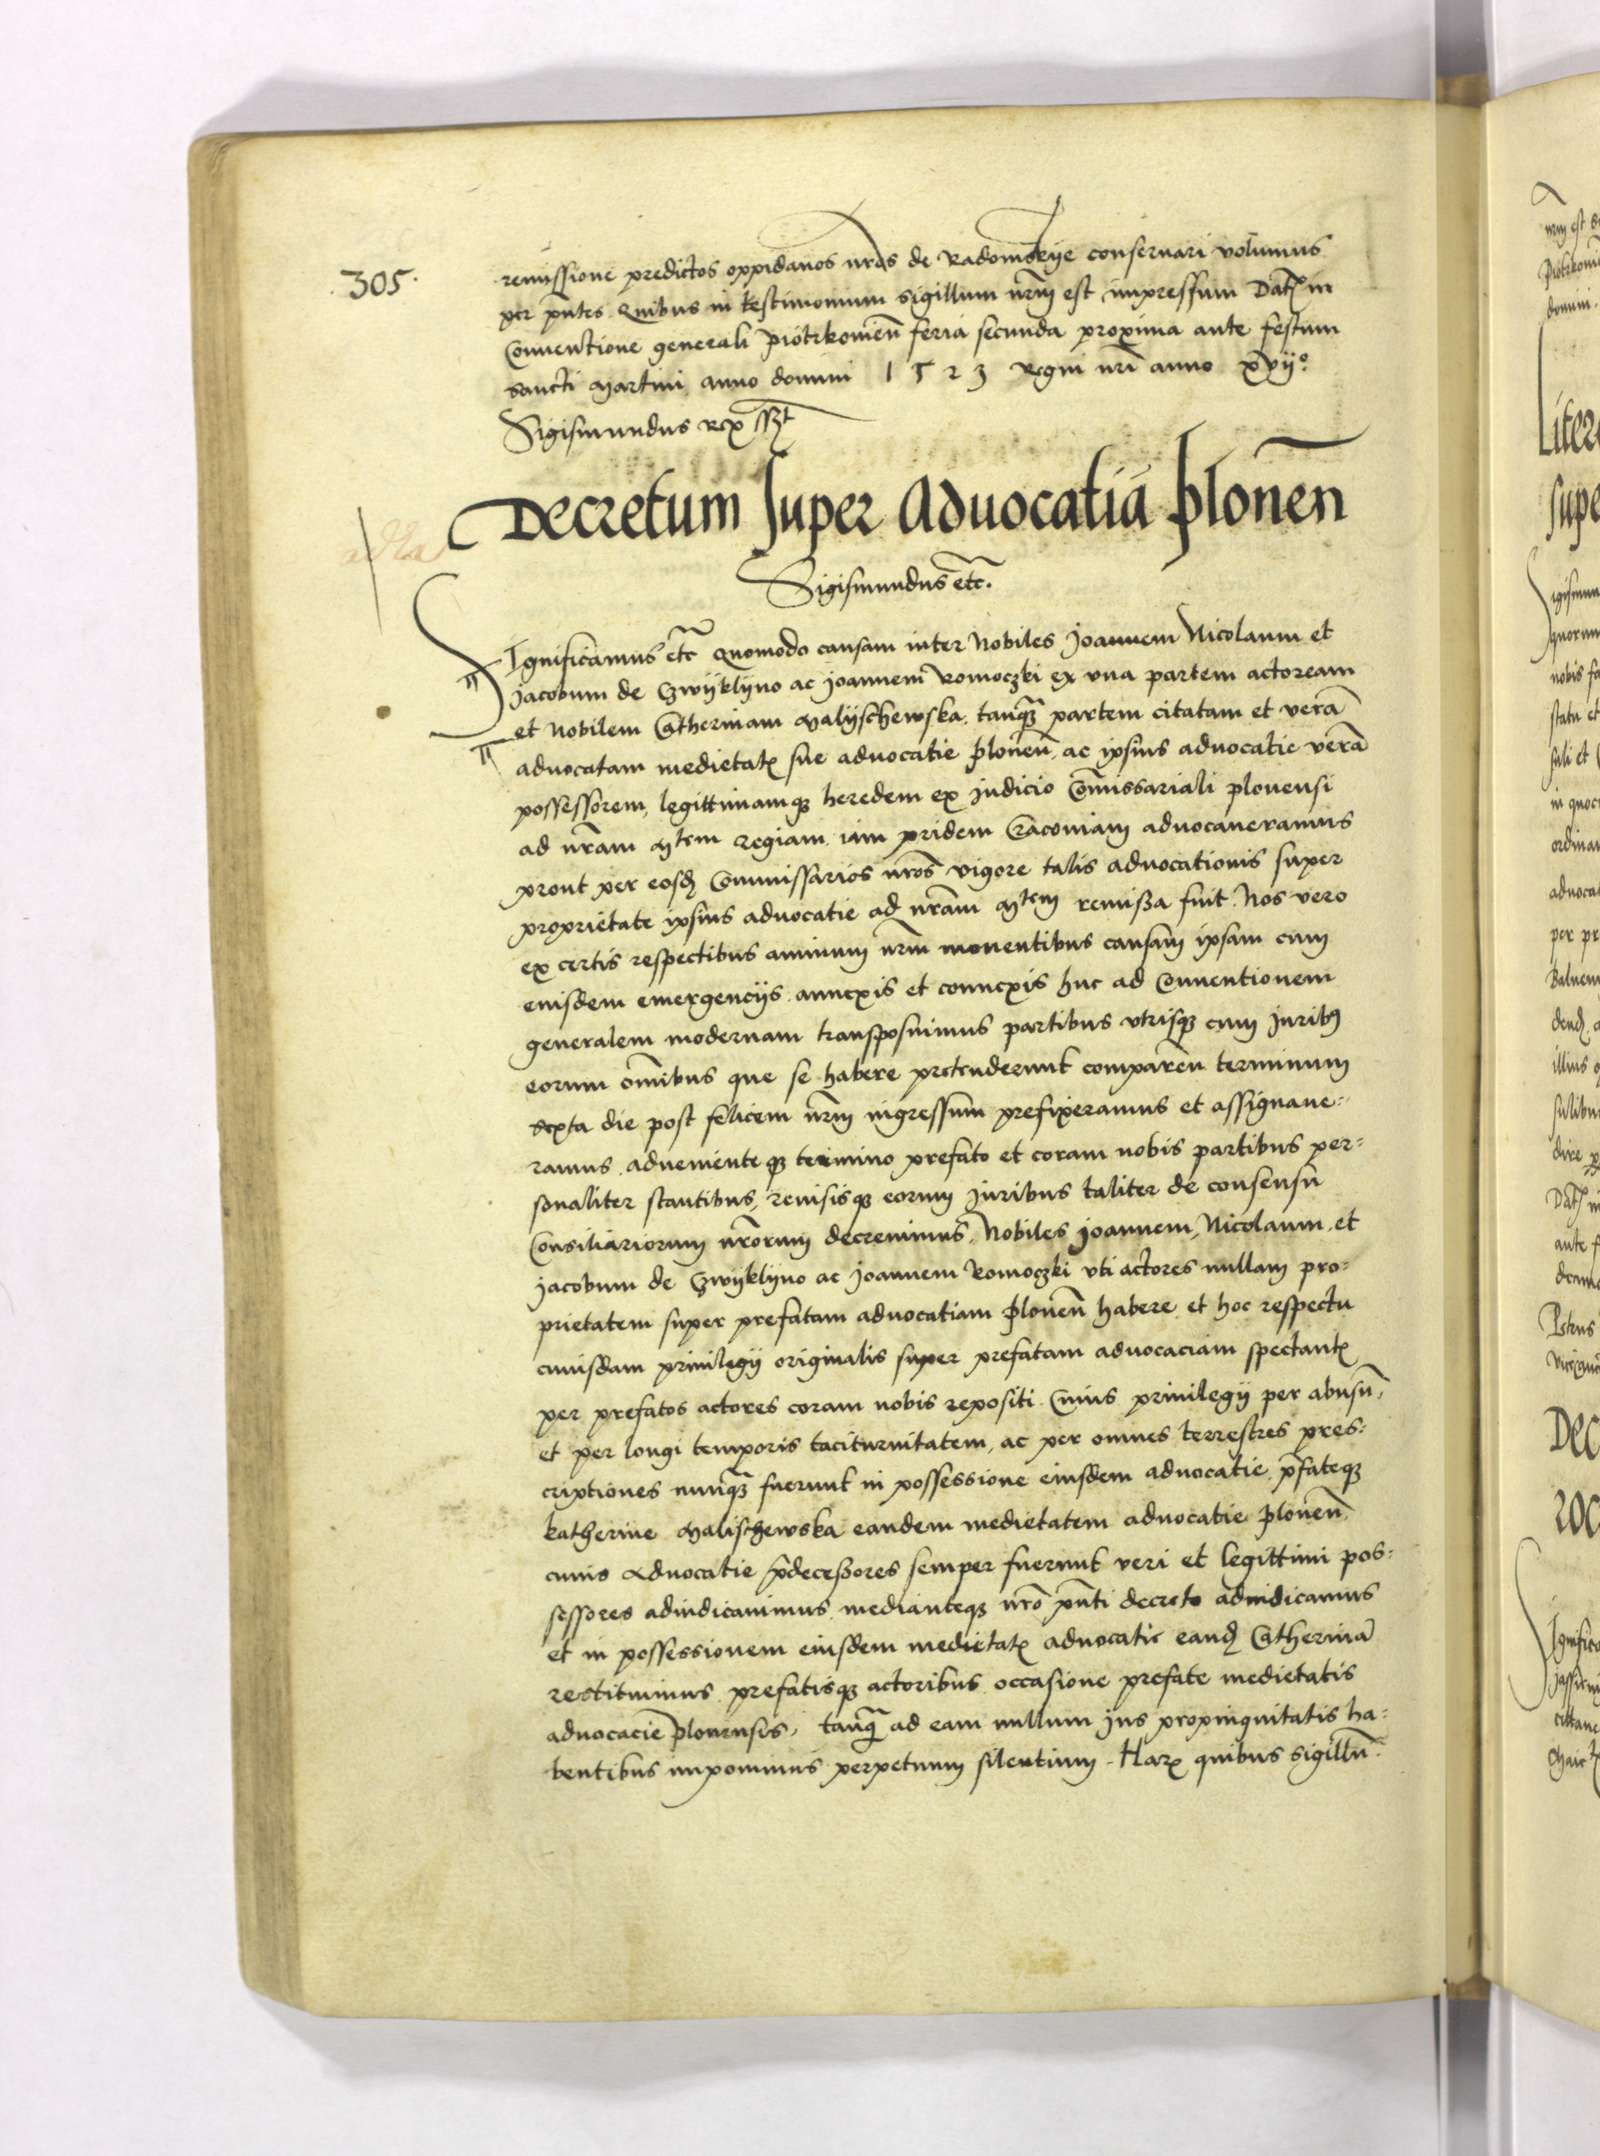 305.
remissione predictos oppidanos nr̃os de Radomskye conservari volumus
per pñtes. Quibus in testimonium sigillum nr̃m est impressum Datȝ in
Conventione generali Piotrkovieñ feria secunda proxima ante festum
sancti Martini anno domini 1523 Regni nr̃i anno xvijº
Sigismundus Rex sszt
Decretum super Advocatia Ploneñ
Sigismundus etc̃.
SIgnificamus etc̃ Quomodo causam inter Nobiles Joannem Nicolaum et
Jacobum de Gzwyklyno ac Joannem Romoczki ex una partem actoream
et Nobilem Catherinam Malyschewska tanqȝ partem citatam et verã
advocatam medietatȝ sue advocatie ploneñ ac ipsius advocatie verã
possessorem, legittimamqȝ heredem ex Judicio Com̃issariali plonensi
ad nr̃am Mtem regiam iam pridem Cracoviam advocaveramus
prout per eosdȝ Commissarios nr̃os vigore talis advocationis super
proprietate ipsius advocatie ad nr̃am Mtem remissa fuit. Nos vero
ex certis respectibus animum nr̃m moventibus causam ipsam cum
eiusdem emergencijs annexis et connexis huc ad Conventionem
generalem modernam transposuimus partibus utrisqȝ cum Juribȝ
eorum om̃ibus que se habere pretenderunt compareñ terminum
sexta die post felicem nr̃m ingressum prefixeramus et assignave-
ramus. advenienteqȝ termino prefato et coram nobis partibus per-
sonaliter stantibus, revisisqȝ eorum Juribus taliter de consensu
Consiliariorum nr̃orum decrevimus, Nobiles Joannem, Nicolaum, et
Jacobum de Gzwyklyno ac Joannem Romoczki uti actores nullam pro-
prietatem super prefatam advocatiam ploneñ habere et hoc respectu
cuiusdam privilegij originalis super prefatam advocaciam spectantȝ
per prefatos actores coram nobis repositi. Cuius privilegij per abusũ,
et per longi temporis taciturnitatem, ac per omnes terrestres pres-
criptiones nunqȝ fuerunt in possessione eiusdem advocatie, p̃fateqȝ
Katherine Malischewska eandem medietatem advocatie ploneñ
cuius Advocatie p̃decessores semper fuerunt veri et legittimi pos-
sessores adiudicavimus, medianteqȝ nr̃o pñti decreto adiudicamus
et in possessionem eiusdem medietatȝ advocatie eandȝ Catherinã
restituimus prefatisqȝ actoribus occasione prefate medietatis
advocacie plonensis, tanqȝ ad eam nullum Jus propinquitatis ha-
bentibus imponimus perpetuum silentium. Harȝ quibus sigillũ